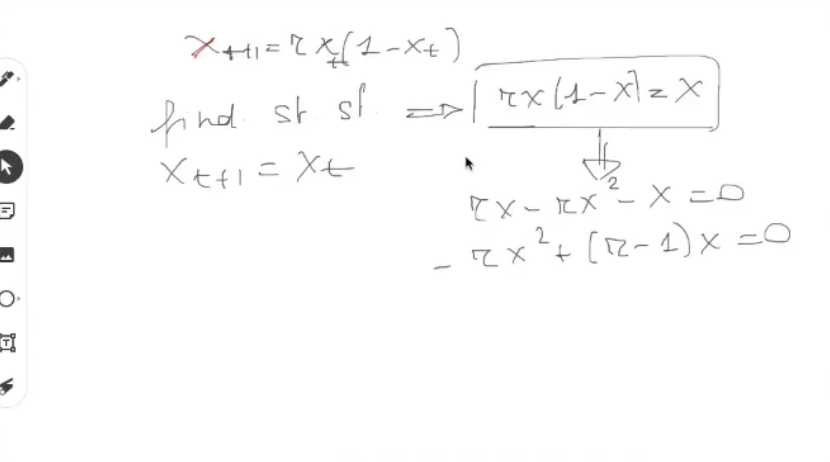 x_{t+1} = r x_t (1 - x_t)
find st. st. ⇒ rx(1 - x) = x
x_{t+1} = x_t
⇓
rx - rx² - x = 0
- rx² + (r - 1)x = 0
T